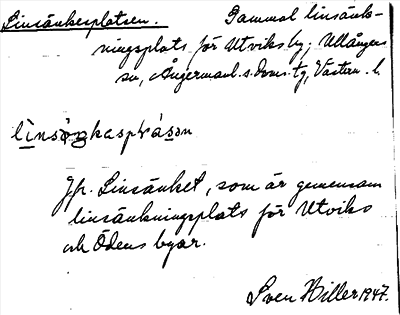 Linsänkesplatsen. Gammal linsänk-
ningsplats för Utviks by; Ullångers
sn, Ångermanl. s. Doms. tg, Västern. l.
linsäŋkasplásən
Jfr. Linsänket, som är gemensam
linsänkningsplats för Utviks
och Ödens byar.
Sven Hiller 1947.